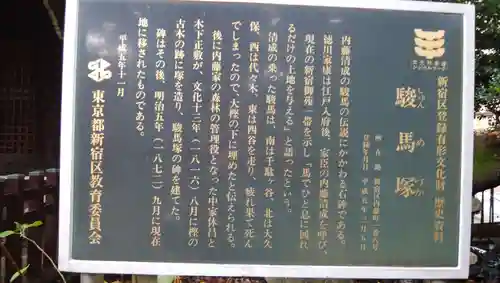 文化財愛護
シンボルマーク
新宿区登録有形文化財 歴史資料
駿馬塚
しゅん め づか
所在地 新宿区内藤町一番八号
内藤清成の駿馬の伝説にかかわる石碑である。
徳川家康は江戸入府後、家臣の内藤清成を呼び、
現在の新宿御苑一帯を示し「馬でひと息に回れ
るだけの土地を与える」と語ったという。
清成の乗った駿馬は、南は千駄ヶ谷、北は大久
保、西は代々木、東は四谷を走り、疲れ果て死ん
でしまったので、大樫の下に埋めたと伝えられる。
後に内藤家の森林の管理役となった中家休昌と
木下正敷が、文化十三年(一八一六)八月に樫の
古木の跡に塚を造り、駿馬塚の碑を建てた。
碑はその後、明治五年(一八七二)九月に現在
地に移されたものである。
平成五年十一月
東京都新宿区教育委員会